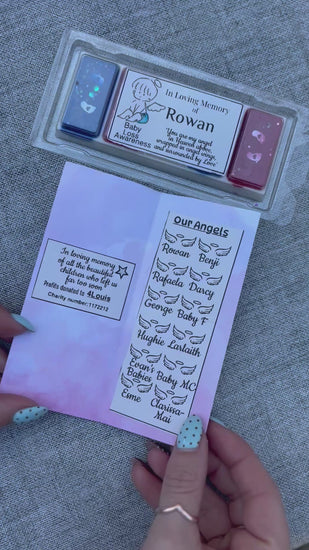 In Loving Memory
of
Rowan
"You are my angel
in Heaven above,
wrapped in angel wings,
and surrounded by Love"
Baby
Loss
Awareness
In loving memory
of all the beautiful
children who left us
far too soon
Profits donated to 4Louis
Charity number: 1172212
Our Angels
Rowan Benji
Rafaela Darcy
George Baby F
Hughie Larlaith
Evan's Baby MC
Babies
Esme Clarissa-
Mai